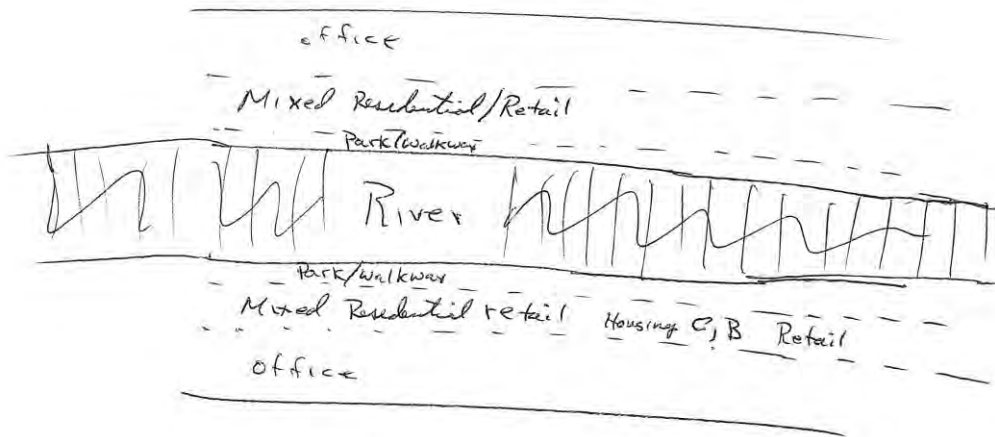 office
Mixed Residential/Retail
Park/walkway
River
Park/walkway
Mixed Residential retail Housing C, B Retail
office